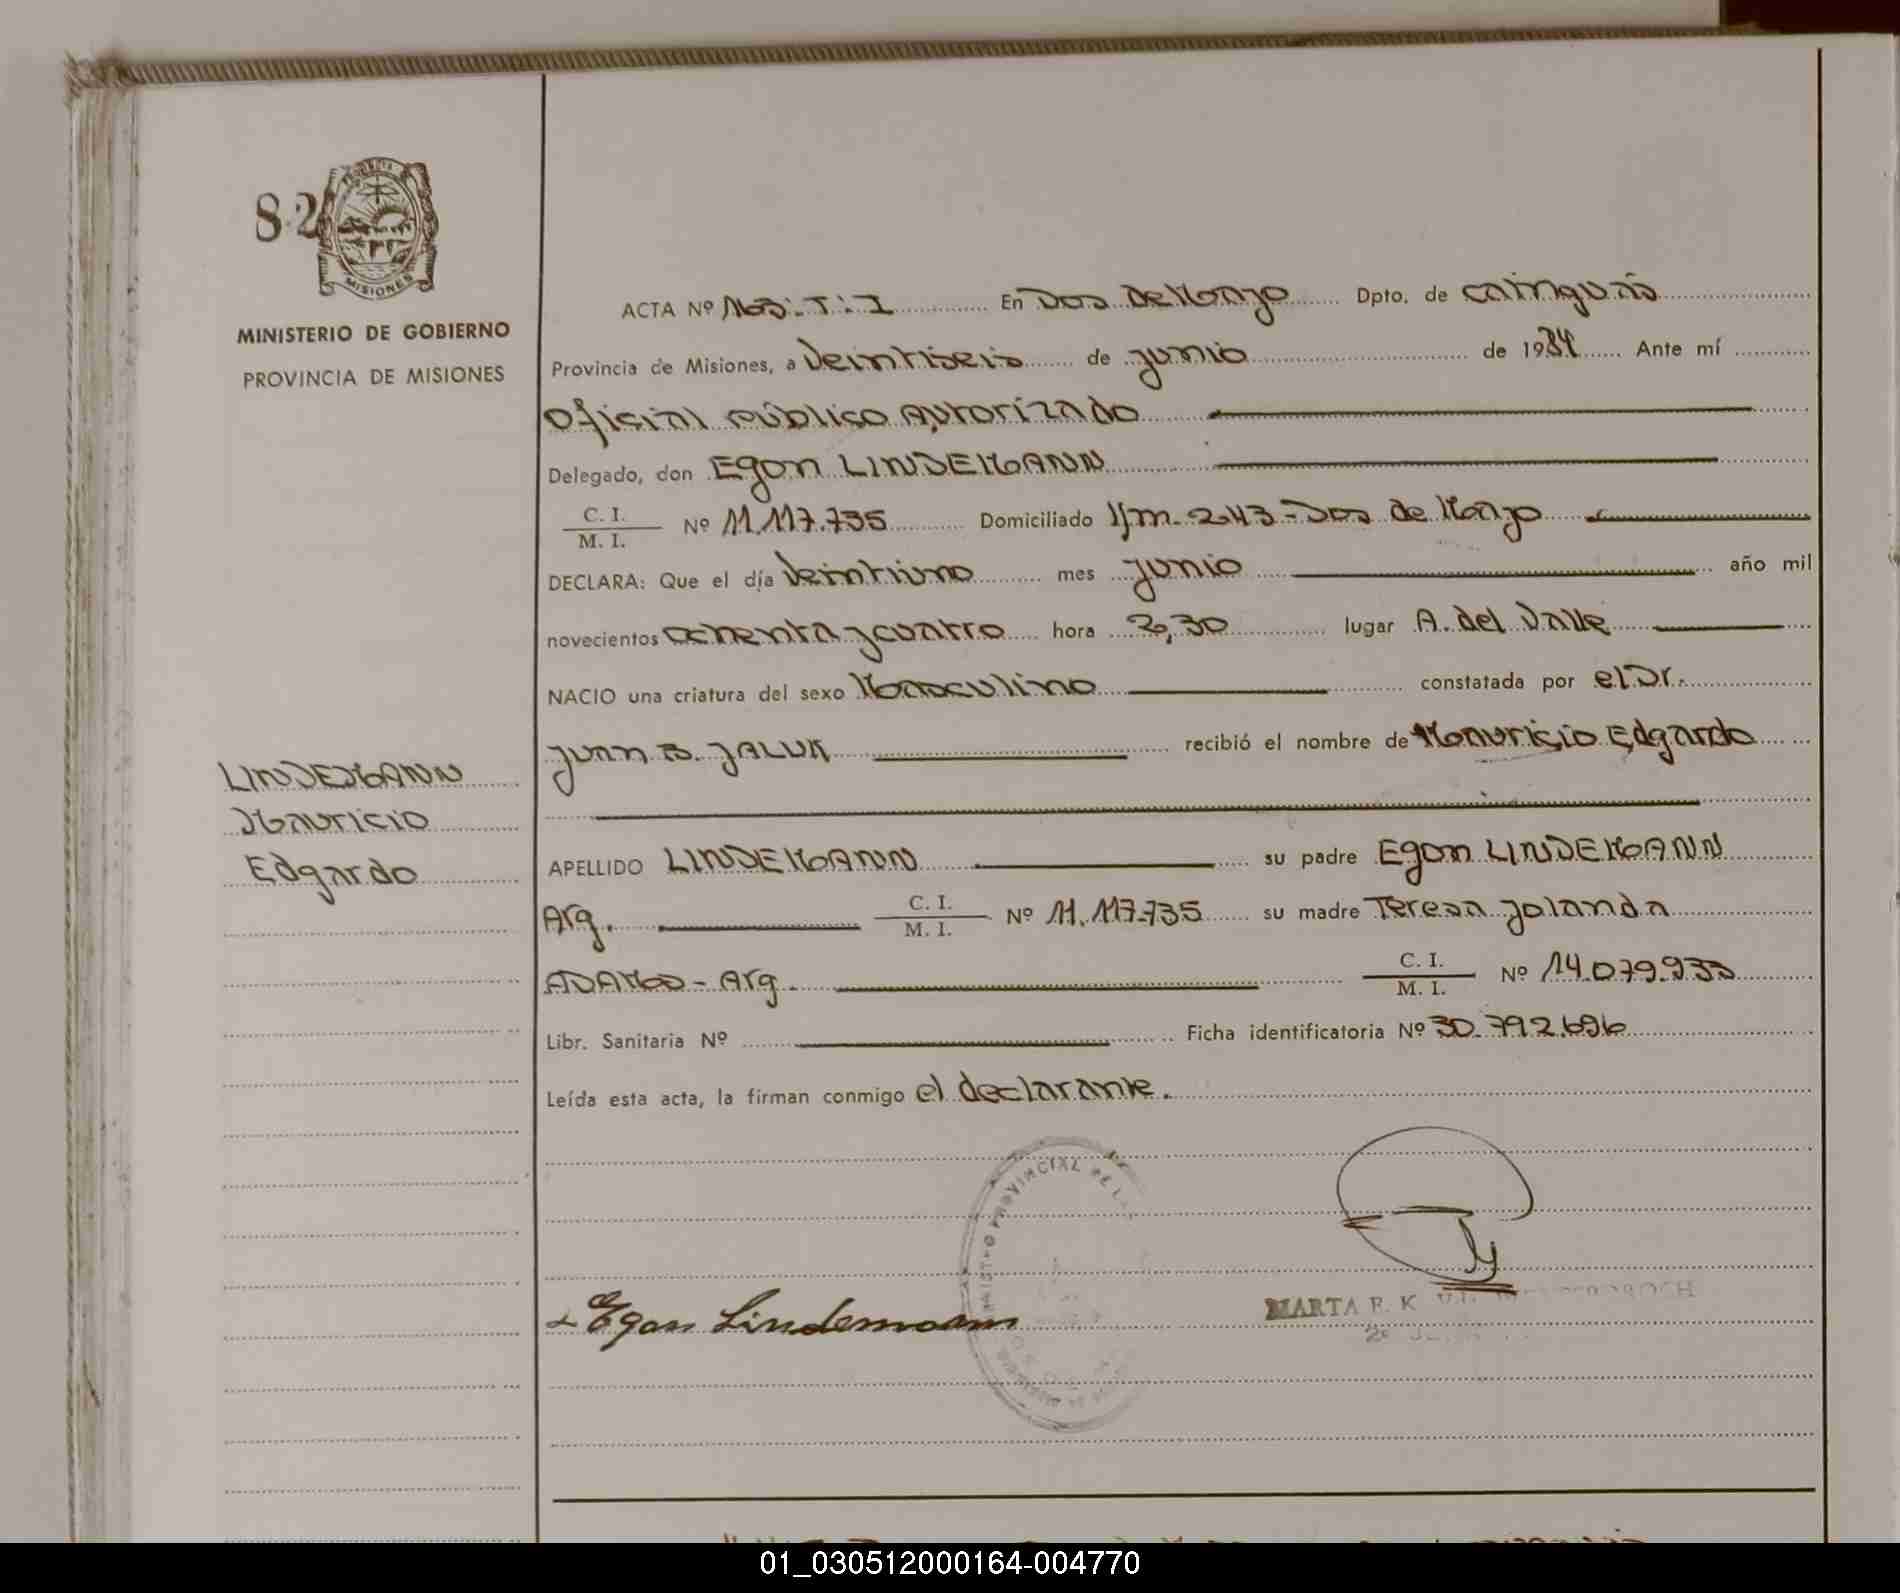 82
MINISTERIO DE GOBIERNO
PROVINCIA DE MISIONES
LINDEMANN
Mauricio
Edgardo
ACTA Nº 163.T.I En Dos de Mayo Dpto. de Cainguás
Provincia de Misiones, a Veintiseis de junio de 1984 Ante mí
Oficial Público Autorizado
Delegado, don Egon LINDEMANN
C. I.
M. I. Nº 11.117.735 Domiciliado Km. 243 - Dos de Mayo
DECLARA: Que el día Veintiuno mes junio año mil
novecientos ochenta y cuatro hora 2,30 lugar A. del Valle
NACIO una criatura del sexo Masculino constatada por el Dr.
Juan B. JALUK recibió el nombre de Mauricio Edgardo
APELLIDO LINDEMANN su padre Egon LINDEMANN
Arg. C. I.
M. I. Nº 11.117.735 su madre Teresa Jolanda
ADAMO - Arg. C. I.
M. I. Nº 14.079.933
Libr. Sanitaria Nº Ficha identificatoria Nº 30.792.696
Leída esta acta, la firman conmigo el declarante.
PROVINCIAL DE LA
Egon Lindemann
MARTA E. K
01_030512000164-004770